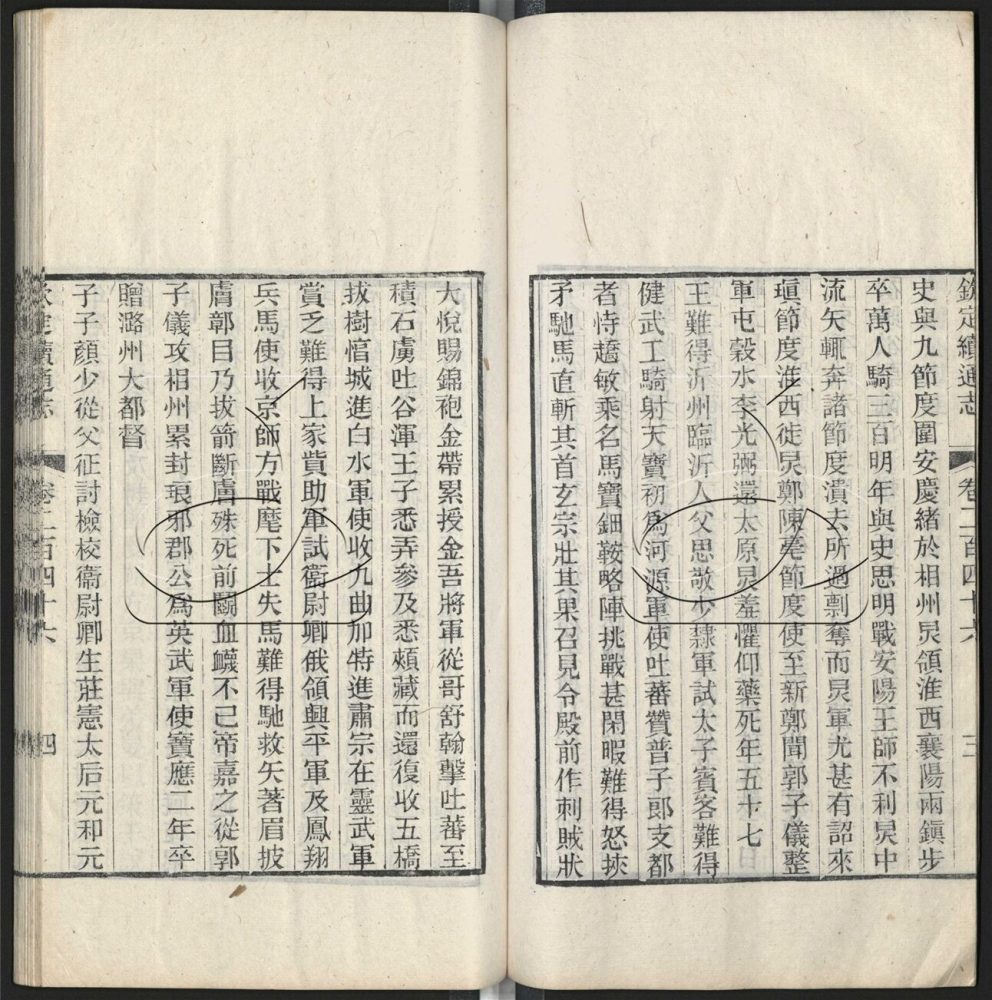 欽定續通志 卷二百四十六 三
史與九節度圍安慶緒於相州炅領淮西襄陽兩鎮步
卒萬人騎三百明年與史思明戰安陽王師不利炅中
流矢輒奔諸節度潰去所過剽奪而炅軍尤甚有詔來
瑱節度淮西徙炅鄭陳亳節度使至新鄭聞郭子儀整
軍屯穀水李光弼還太原炅羞懼仰藥死年五十七
王難得沂州臨沂人父思敬少隸軍試太子賓客難得
健武工騎射天寶初爲河源軍使吐蕃贊普子郎支都
者恃趫敏乘名馬寶鈿鞍略陣挑戰甚閑暇難得怒挾
矛馳馬直斬其首玄宗壯其果召見令殿前作刺賊狀
大悅賜錦袍金帶累授金吾將軍從哥舒翰擊吐蕃至
積石虜吐谷渾王子悉弄參及悉頰藏而還復收五橋
拔樹惇城進白水軍使收九曲加特進肅宗在靈武軍
賞乏難得上家貲助軍試衛尉卿俄領興平軍及鳳翔
兵馬使收京師方戰麾下士失馬難得馳救矢著眉披
膚鄣目乃拔箭斷膚殊死前鬬血衊不已帝嘉之從郭
子儀攻相州累封琅邪郡公爲英武軍使寶應二年卒
贈潞州大都督
子子顏少從父征討檢校衛尉卿生莊憲太后元和元
欽定續通志 卷二百四十六 四